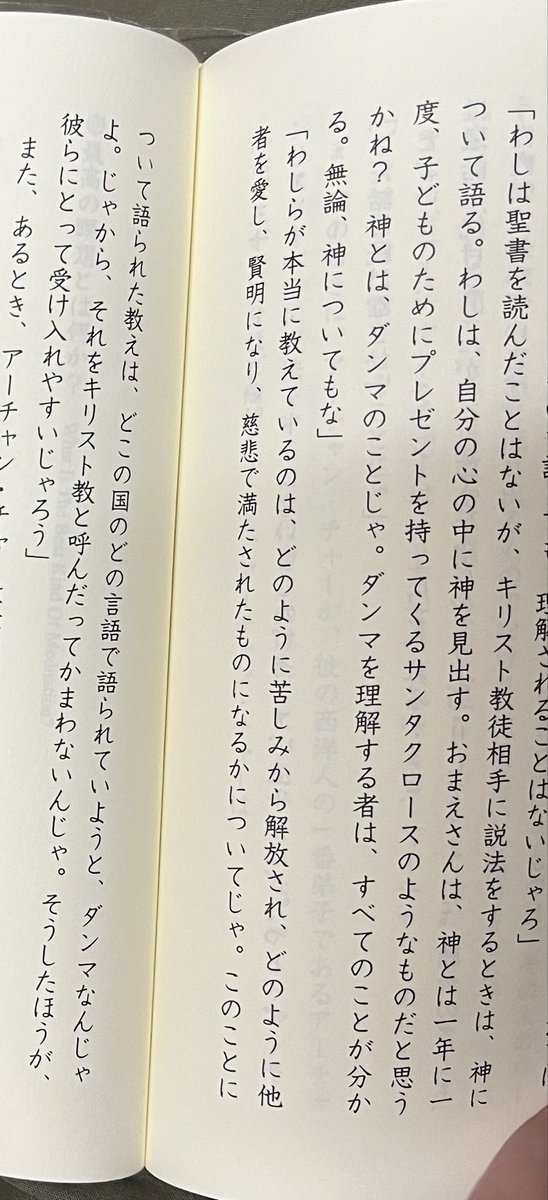 理解されることはないじゃろ」
「わしは聖書を読んだことはないが、キリスト教徒相手に説法をするときは、神に
ついて語る。わしは、自分の心の中に神を見出す。おまえさんは、神とは一年に一
度、子どものためにプレゼントを持ってくるサンタクロースのようなものだと思う
かね？神とは、ダンマのことじゃ。ダンマを理解する者は、すべてのことが分か
る。無論、神についてもな」
「わしらが本当に教えているのは、どのように苦しみから解放され、どのように他
者を愛し、賢明になり、慈悲で満たされたものになるかについてじゃ。このことに
ついて語られた教えは、どこの国のどの言語で語られていようと、ダンマなんじゃ
よ。じゃから、それをキリスト教と呼んだってかまわないんじゃ。そうしたほうが、
彼らにとって受け入れやすいじゃろう」
また、あるとき、アーチャン・チャー